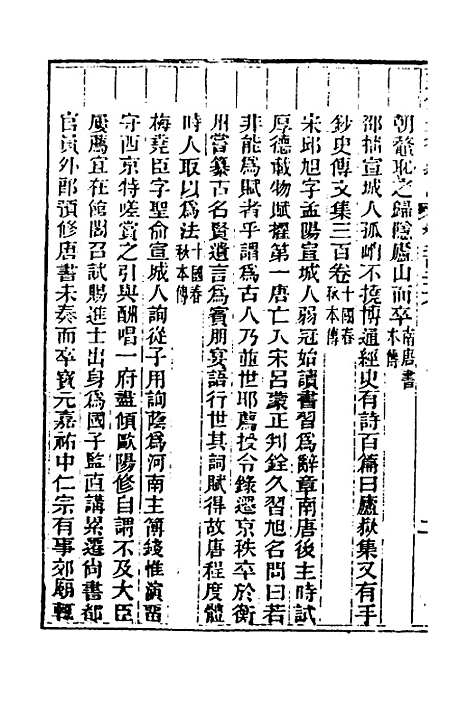 朝欝恥之歸隱廬山而卒南唐書本傳
邵拙宣城人孤峭不撓博通經史有詩百篇曰廬嶽集又有手
鈔史傳文集三百卷十國春秋本傳
宋邱旭字孟陽宣城人弱冠始讀書習爲辭章南唐後主時試
厚德載物賦擢第一唐亡入宋呂蒙正判銓久習旭名問曰若
非能爲賦者乎謂爲古人乃並世耶薦授令錄遷京秩卒於衡
州嘗纂古名賢遺言爲賓朋宴語行世其詞賦得故唐程度體
時人取以爲法十國春秋本傳
梅堯臣字聖俞宣城人詢從子用詢蔭爲河南主簿錢惟演留
守西京特嗟賞之引與酬唱一府盡傾歐陽修自謂不及大臣
屢薦宜在館閣召試賜進士出身爲國子監直講累遷尚書都
官員外郎預修唐書未奏而卒寶元嘉祐中仁宗有事郊廟輒